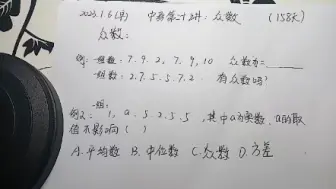 2023.1.6(周) 中寿第二十五讲:众数 (158天)
众数:
例:一组数:7.9.2,7,9,10 众数为=
一组数:2.7.5.5.7.2. 有众数吗?
一组:
例2:1,a.5.2.5.5,其中a为实数,a的取
值不影响( )
A.平均数 B.中位数 C.众数 D.方差